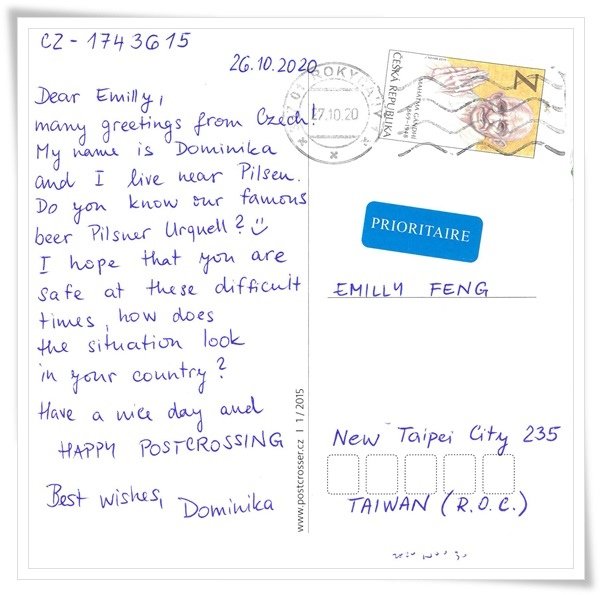 CZ-1743615
26.10.2020
Dear Emilly,
many greetings from Czech!
My name is Dominika
and I live near Pilsen.
Do you know our famous
beer Pilsner Urquell? ☺
I hope that you are
safe at these difficult
times, how does
the situation look
in your country?
Have a nice day and
HAPPY POSTCROSSING
Best wishes,
Dominika
www.postcrosser.cz | 1/2015
ROKY
27.10.20
ČESKÁ REPUBLIKA
MAHATMA GANDHI
1869-1948
Z
PRIORITAIRE
EMILLY FENG
New Taipei City 235
TAIWAN (R.O.C.)